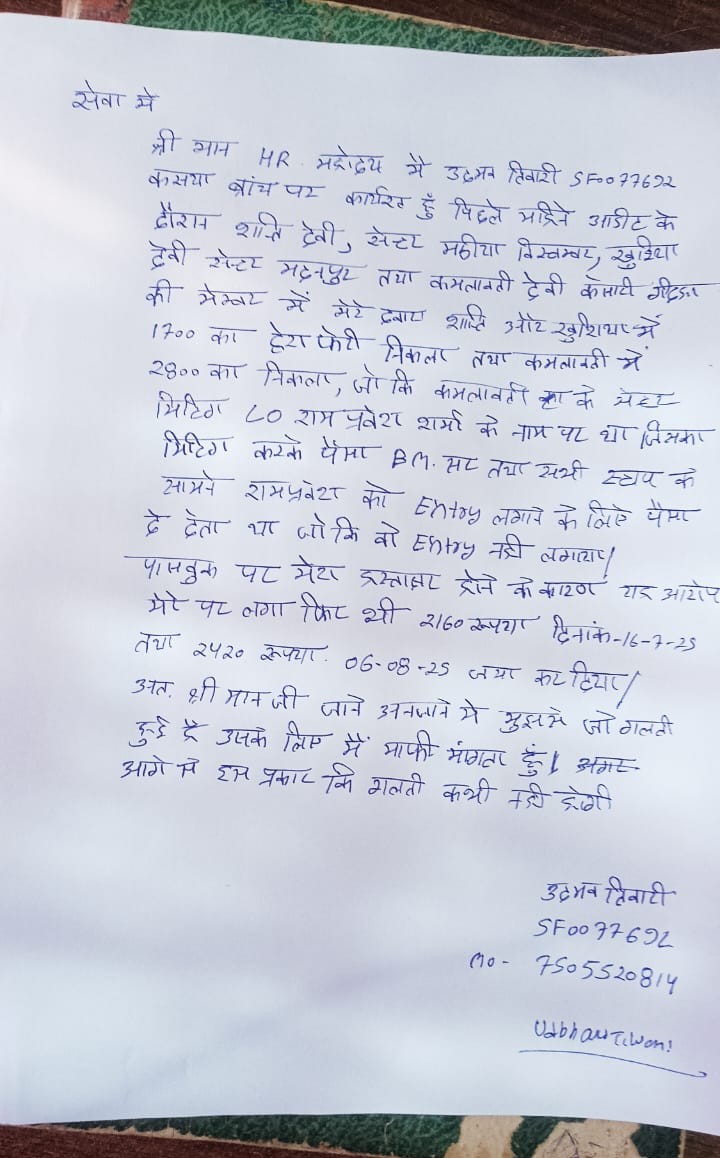 सेवा मे
श्री मान HR. महोदय मै उद्भव तिवारी SF0077692
कसया ब्रांच पर कार्यरत हुँ पिछले महिने आडीट के
दौरान शान्ति देवी, सेन्टर मठीया विस्वम्बर, खुशिया
देवी सेन्टर मदनपुर तथा कमलावती देवी
की मेम्बर में मेरे द्वारा शान्ति और खुशिया में
1700 का हेरा फेरी निकला तथा कमलावती में
2800 का निकला, जो कि कमलावती के सेन्टर
मिटिंग LO रामप्रवेश शर्मा के नाम पर था जिसका
मिटिंग करके पैसा BM. सर तथा सभी स्टाप के
सामने रामप्रवेश को Entry लगाने के लिए पैसा
दे देता था जो कि वो Entry नही लगाया/
पासबुक पर मेरा हस्ताक्षर होने के कारण यह आरोप
मेरे पर लगा फिर भी 2160 रूपया दिनांक-16-7-25
तथा 2420 रूपया. 06-08-25 जमा कर दिया/
अतः श्री मान जी जाने अनजाने मे मुझसे जो गलती
हुई है उसके लिए मैं माफी मांगता हुँ। अगर
आगे से इस प्रकार कि गलती कभी नही होगी
उद्भव तिवारी
SF0077692
Mo- 7505520814
Udbhav Tiwari